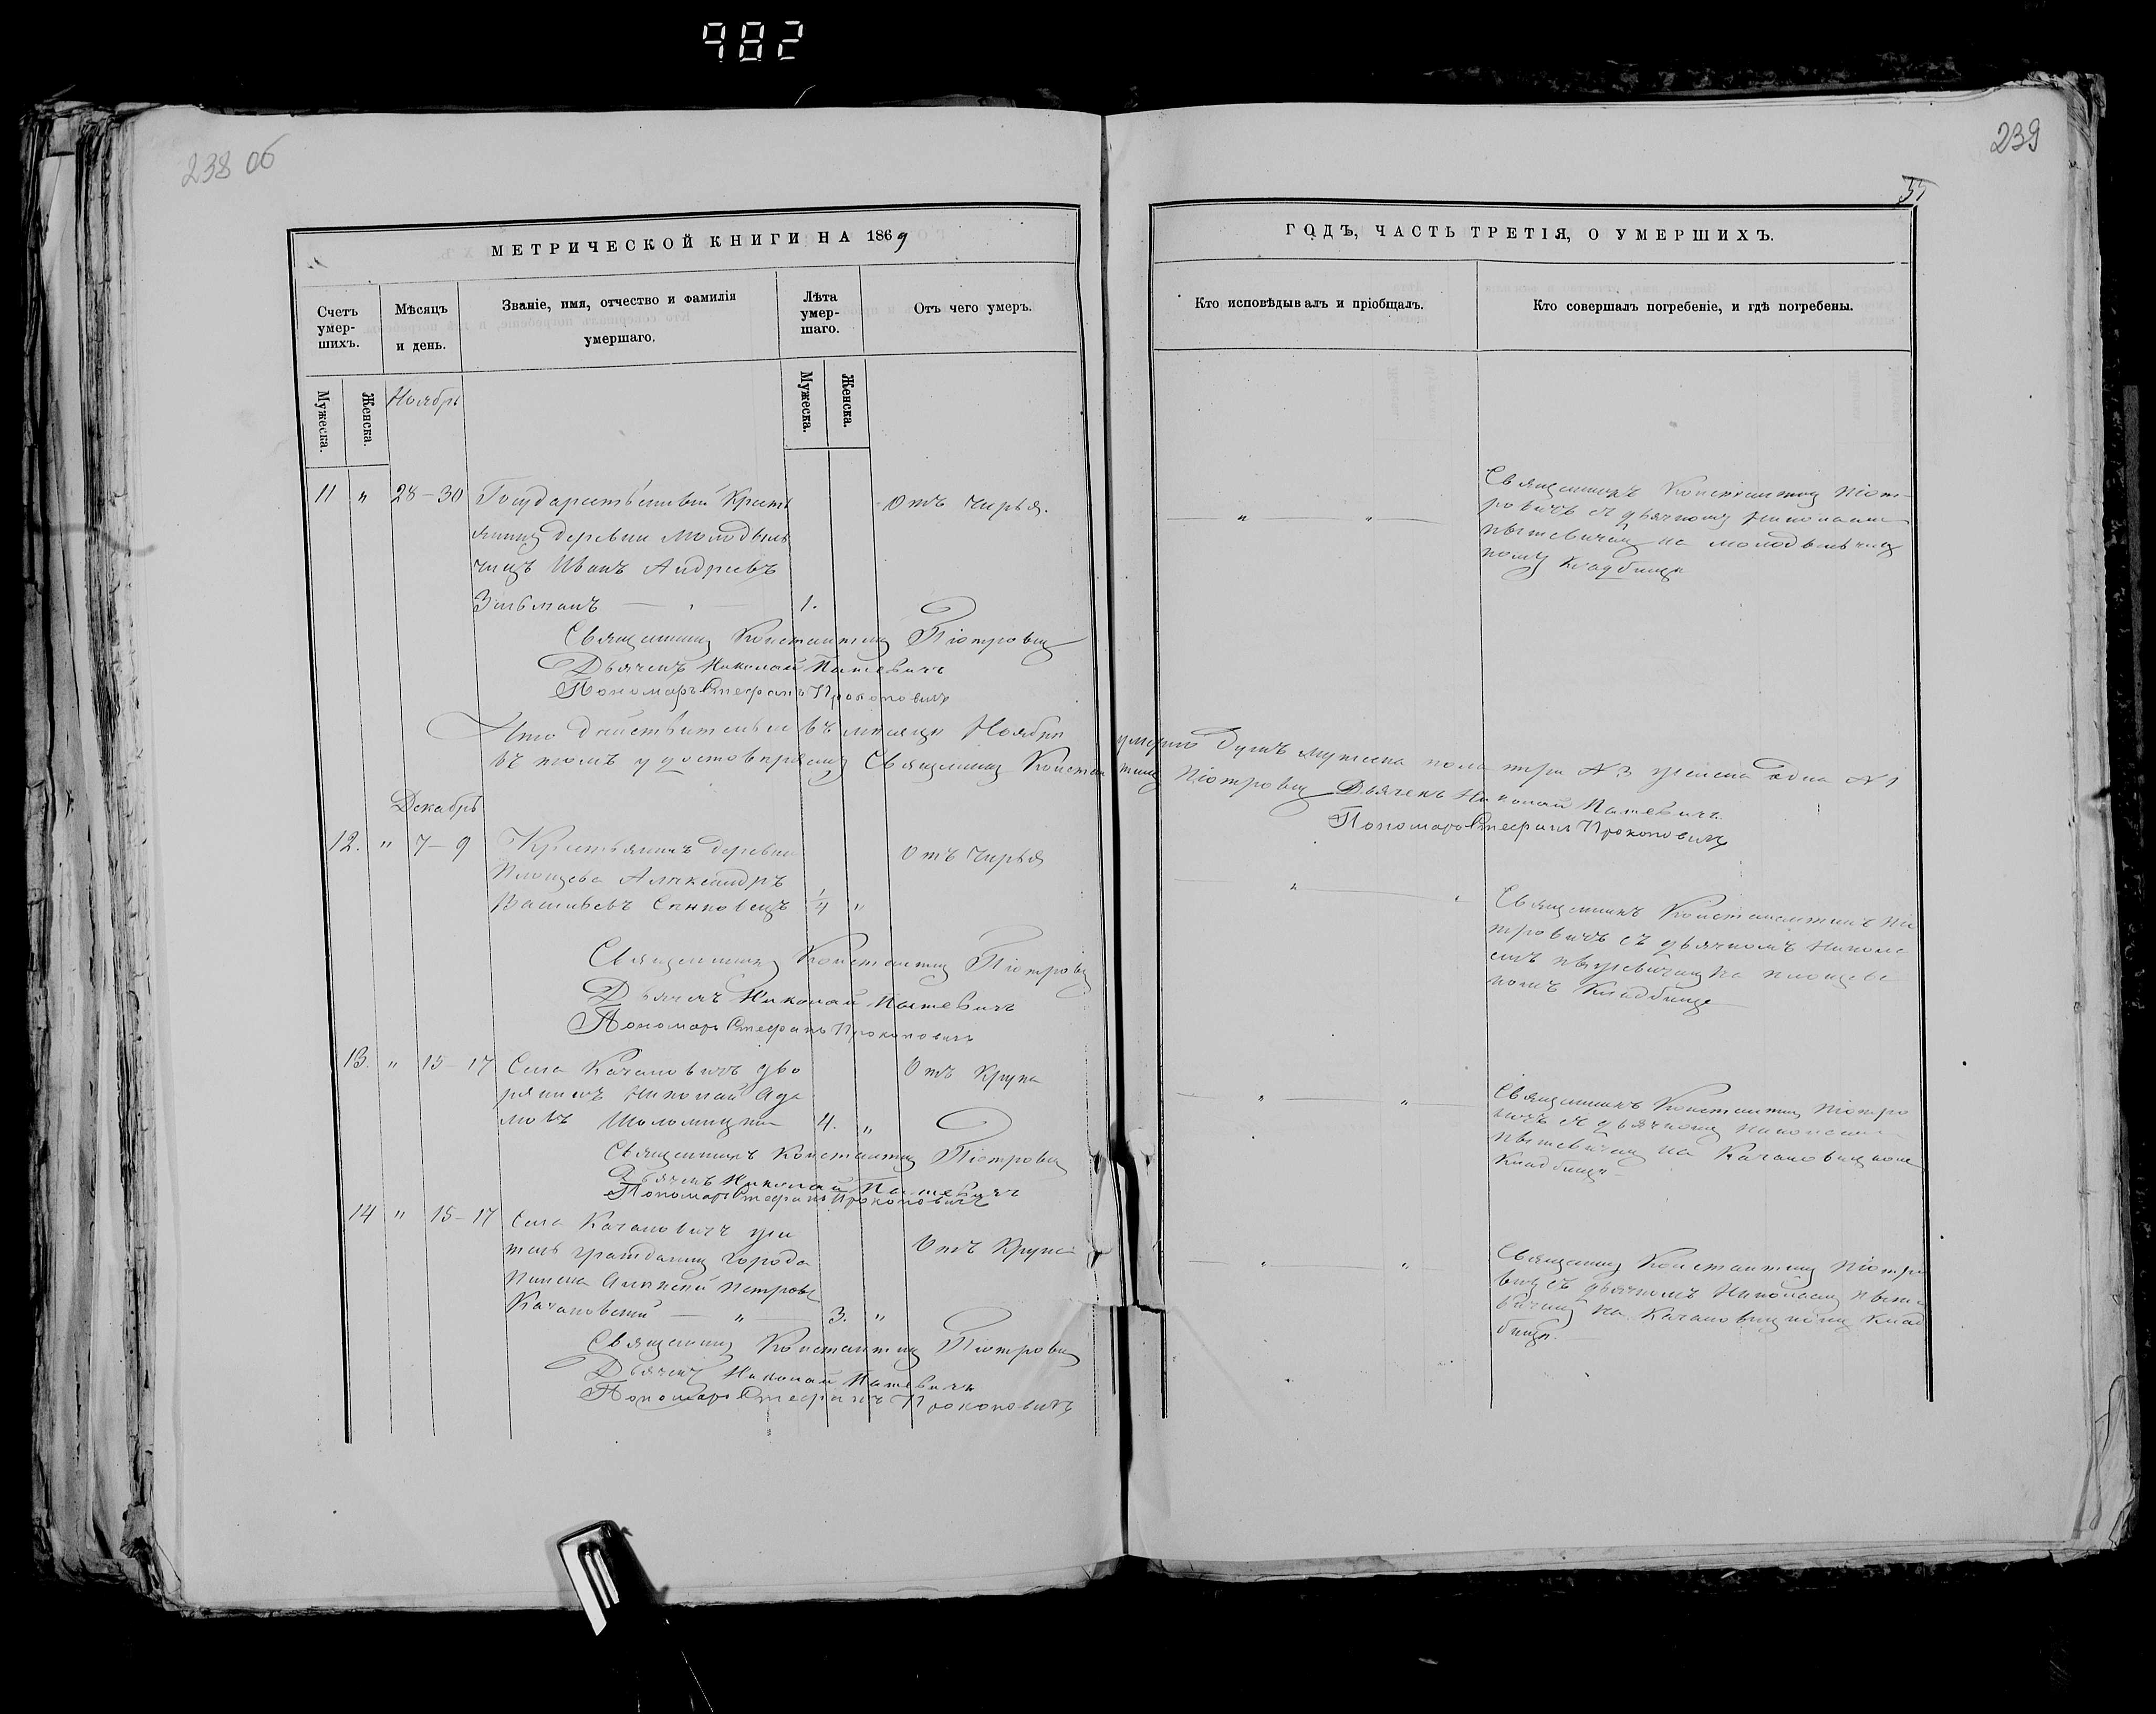 982
238 об
239
МЕТРИЧЕСКОЙ КНИГИ НА 1869
ГОДЪ, ЧАСТЬ ТРЕТІЯ, О УМЕРШИХЪ.
Счетъ умер-шихъ.
Мѣсяцъ и день.
Званіе, имя, отчество и фамилія умершаго.
Лѣта умер-шаго.
Отъ чего умеръ.
Кто исповѣдывалъ и пріобщалъ.
Кто совершалъ погребеніе, и гдѣ погребены.
Мужеска.
Женска.
Мужеска.
Женска.
Ноябрь
11 " 28–30
Государственный Кресть
янинъ деревни Молодыль
чицъ Иванъ Андреевъ
1.
Отъ чирья.
Священникъ Константинъ Піот-
ровичъ съ дьячкомъ Николаем
на
кладбищѣ
Священникъ Константинъ Піотровичъ
Дьячекъ Николай
Пономарь Стефанъ Прокоповичъ
Что дѣйствительно въ мѣсяцѣ Ноябрѣ умерло душъ мужеска пола три №3 женска одна №1
въ томъ удостовѣряемъ Священникъ Константинъ Піотровичъ Дьячекъ Николай
Пономарь Стефанъ Прокоповичъ
Декабрь
12. " 7–9
Крестьянинъ деревни
Площева Александръ
Васильевъ
1/4 "
Отъ чирья
Священникъ Константинъ Піо
тровичъ съ дьячкомъ Никола
емъ на Площевс
комъ Кладбище
Священникъ Константинъ Піотровичъ
Дьячекъ Николай
Пономарь Стефанъ Прокоповичъ
13. " 15–17
Села Качановичъ дво
рянинъ Николай Ада
мовъ Шоломицкій
4. "
Отъ Крупа
Священникъ Константинъ Піотро
вичъ съ дьячкомъ Николаем
на Качановицкомъ
Кладбищѣ
Священникъ Константинъ Піотровичъ
Дьячекъ Николай
Пономарь Стефанъ Прокоповичъ
14 " 15–17
Села Качановичъ жи
тель гражданинъ города
Пинска Алексѣй Петровъ
Качановскій
3. "
Отъ Крупа
Священникъ Константинъ Піотро
вичъ съ дьячкомъ Николаемъ
на Качановицкомъ Клад
бищѣ.
Священникъ Константинъ Піотровичъ
Дьячекъ Николай
Пономарь Стефанъ Прокоповичъ